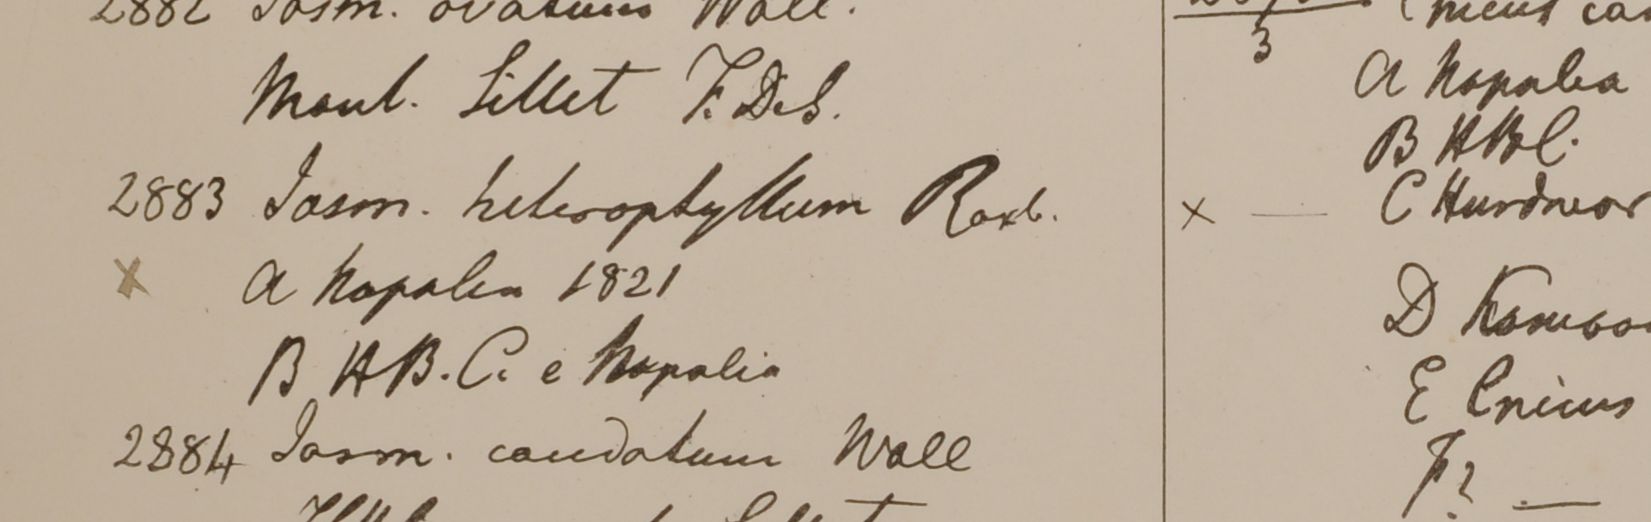 2882 Jasm. ovatum Wall.
Mont. Sillet F. D. S.
2883 Jasm. heterophyllum Roxb.
x a Napalia 1821
B H B. C. e Napalia
2884 Jasm. caudatum Wall
3
a Napalia
B HBC.
x — C Hurdwar
D Kamaoo
E Cnicus
F? —